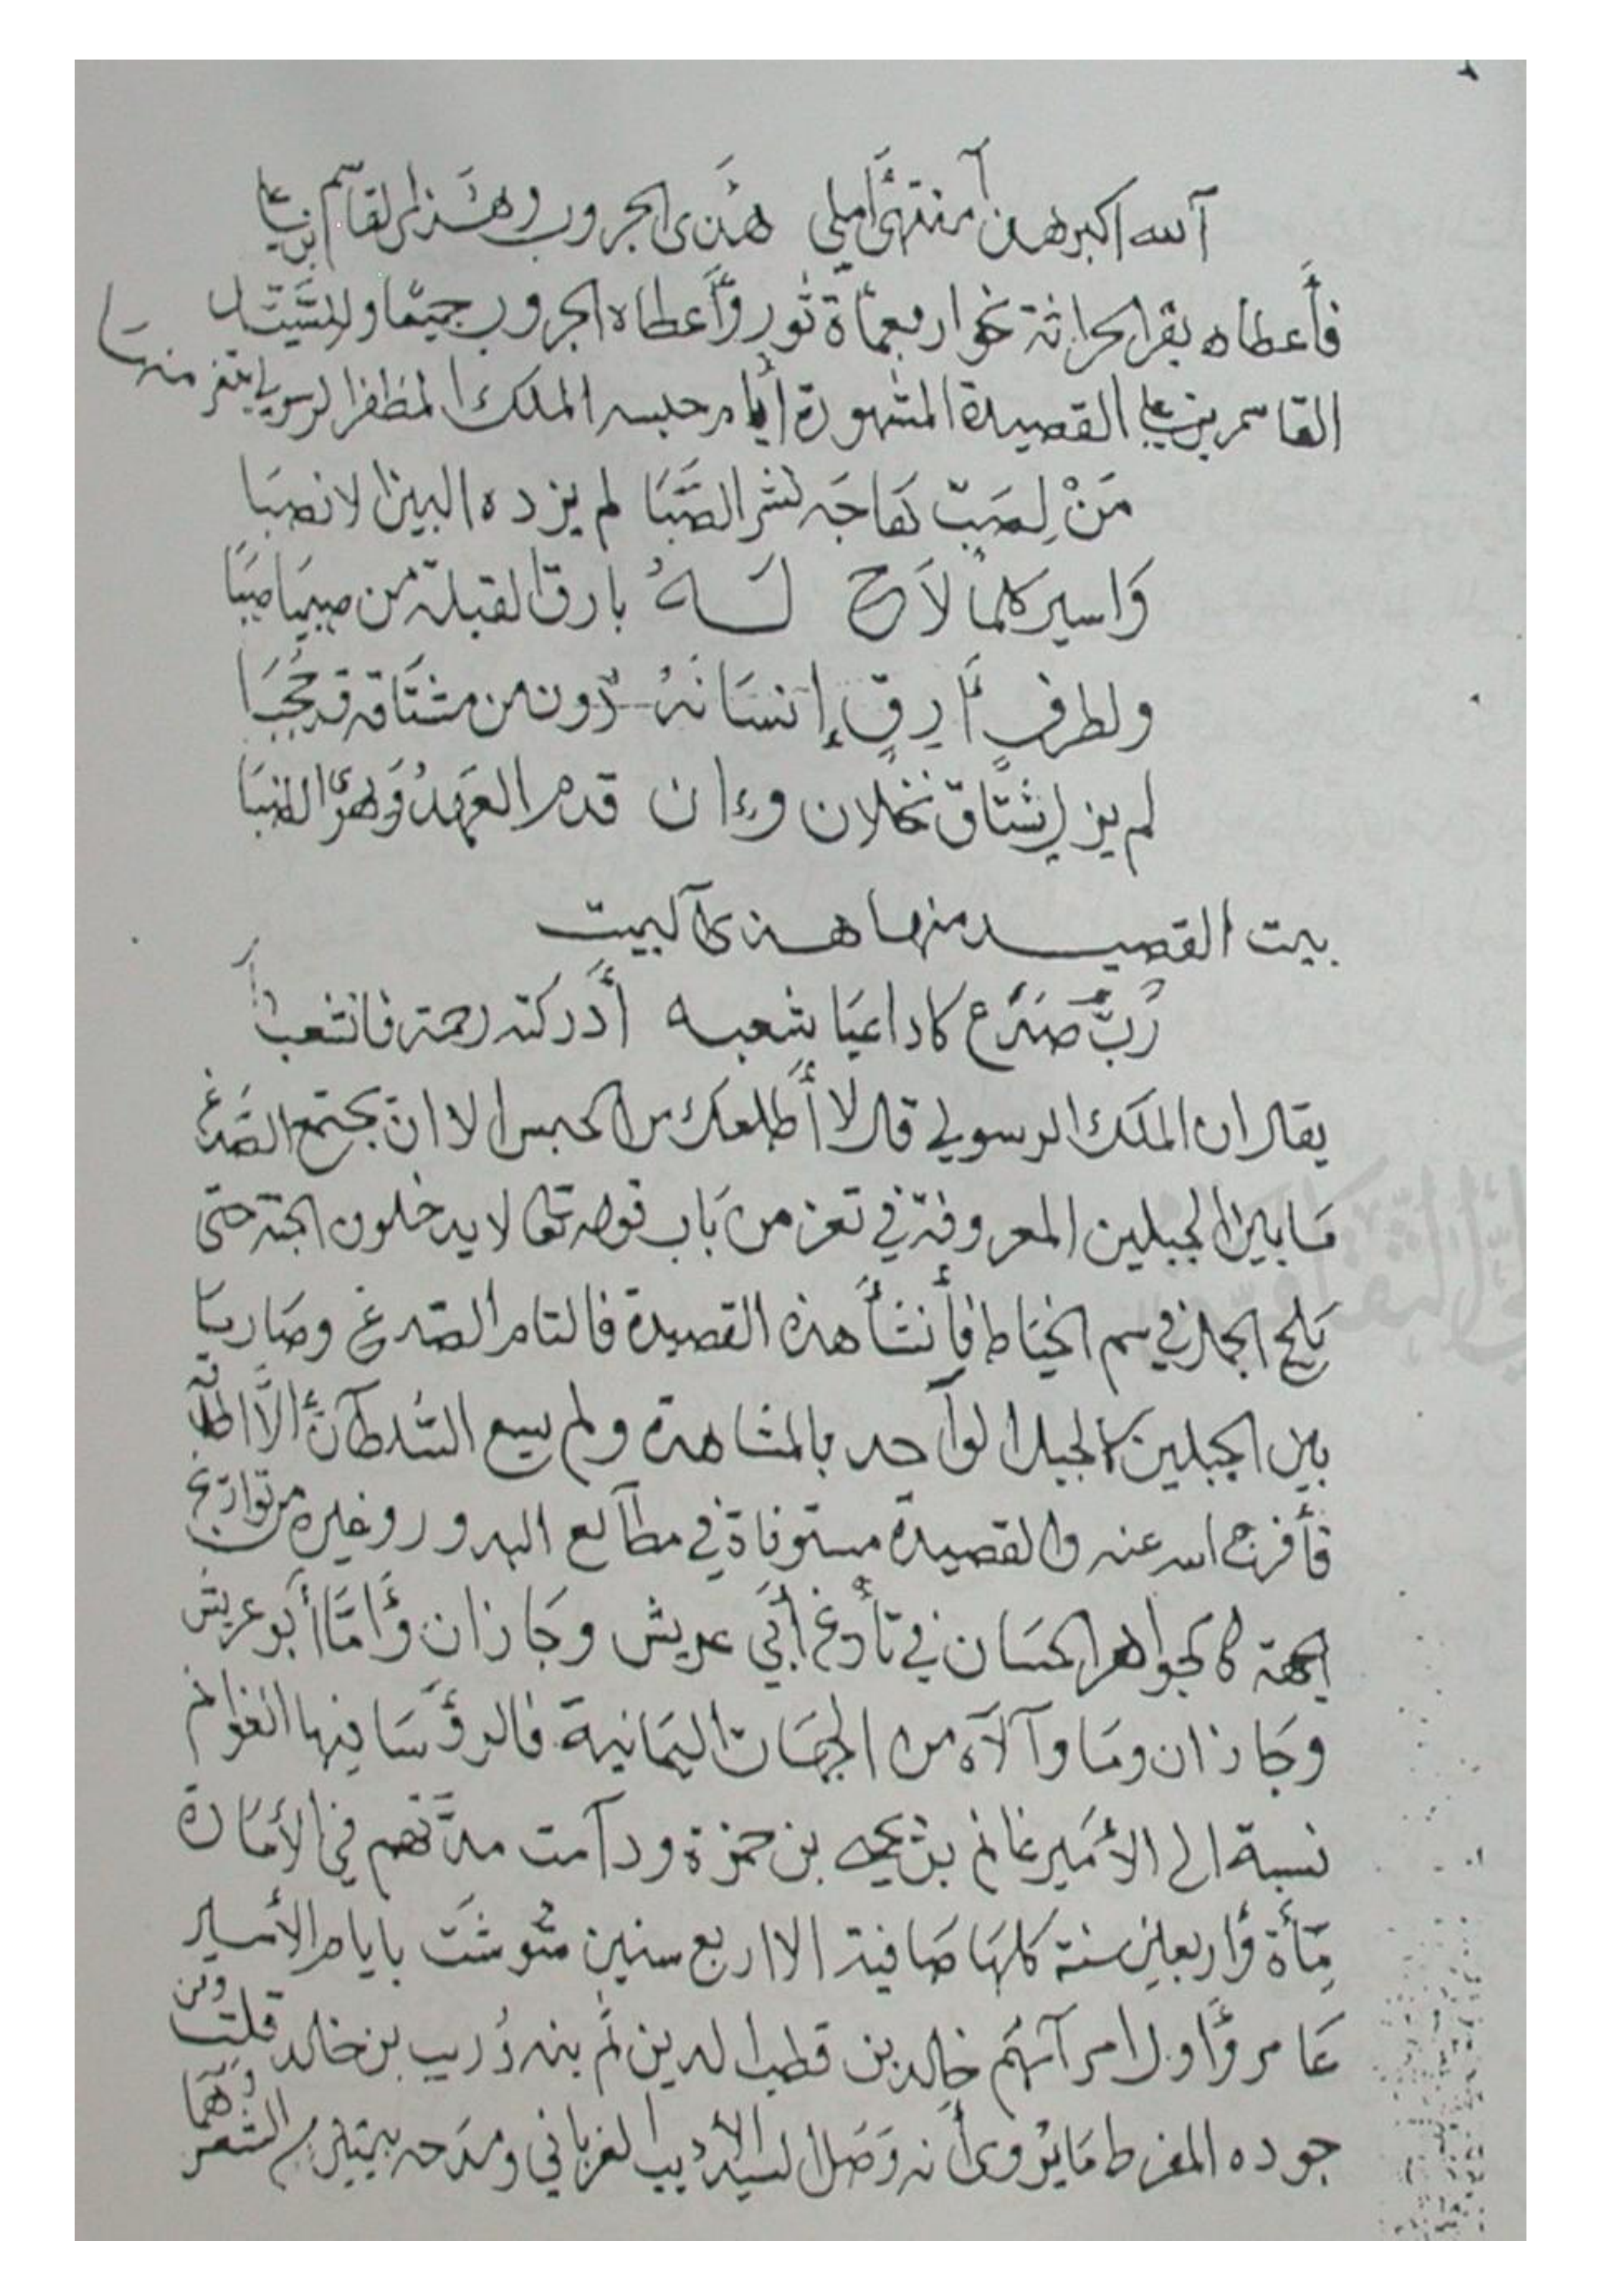 الله اكبر هذا منتهى أملي هذى الجروب وهذا القاسم بن علي
فأعطاه بقر الحراثة نحو اربعمأة ثور وأعطاه الجروب جميعا وللسيد
القاسم بن علي القصيدة المشهورة أيام حبسه الملك المظفر الرسولي بتعز منها
مَنْ لِصَبّ هَاجَه نشر الصَّبَا لم يزده البين الا نصبَا
وَاسير كلما لاَح لَــهُ بارق القبلة من صبيَا صبَا
ولطرفٍ أَرِقٍ إنسَانهُ دون من مشتَاقه قد حُجبَا
لم يزل يشتَاق نخلان وإن قدم العَهدُ وَيهوَى الطنبَا
بيت القصيـــد منها هـذى البيت
رُبَّ صَدْع كاد اعيَا شعبه أدركته رحمة فانشعبا
يقال ان الملك الرسولي قال لا أطلعك من الحبس الا ان يجتمع الصَّدغ
مَا بين الجبلين المعروفة في تعز من بَاب قوله تعَا لا يدخلون الجنة حتى
يَلج الجمل في سم الخيَاط فأنشأ هذه القصيدة فالتام الصّدغ وصَار مَا
بين الجبلين كالجبل الوآحد بالمشاهدة ولم يسع السُّلطآن الاَّ اطلاقه
فأفرج الله عنه والقصيدة مستوفاة في مطآلع البدور وغيره من توارِيخ
الجهة كالجواهر الحسَان في تأريخ أبي عريش وجَازان وأمَّا أبو عريش
وجَازان ومَا وآلآه من الجهَات اليمَانية فالرؤسَا فيها الغوانم
نسبة الى الأمَير غانم بن يحيى بن حمزة ودآمت مدّتهم في الأمَارة
مِأة وأربعين سنة كلهَا صَافية الا اربع سنين تشوشَت بايام الأمير
عَامر وأول امرآئهم خالد بن قطب الدين ثم بنه دُريب بن خالد قلت ومن
جوده المفرط مَا يُروى أنه وَصَل السيد الأديب الغرباني ومدَحه ببيتين من الشعر وَهما